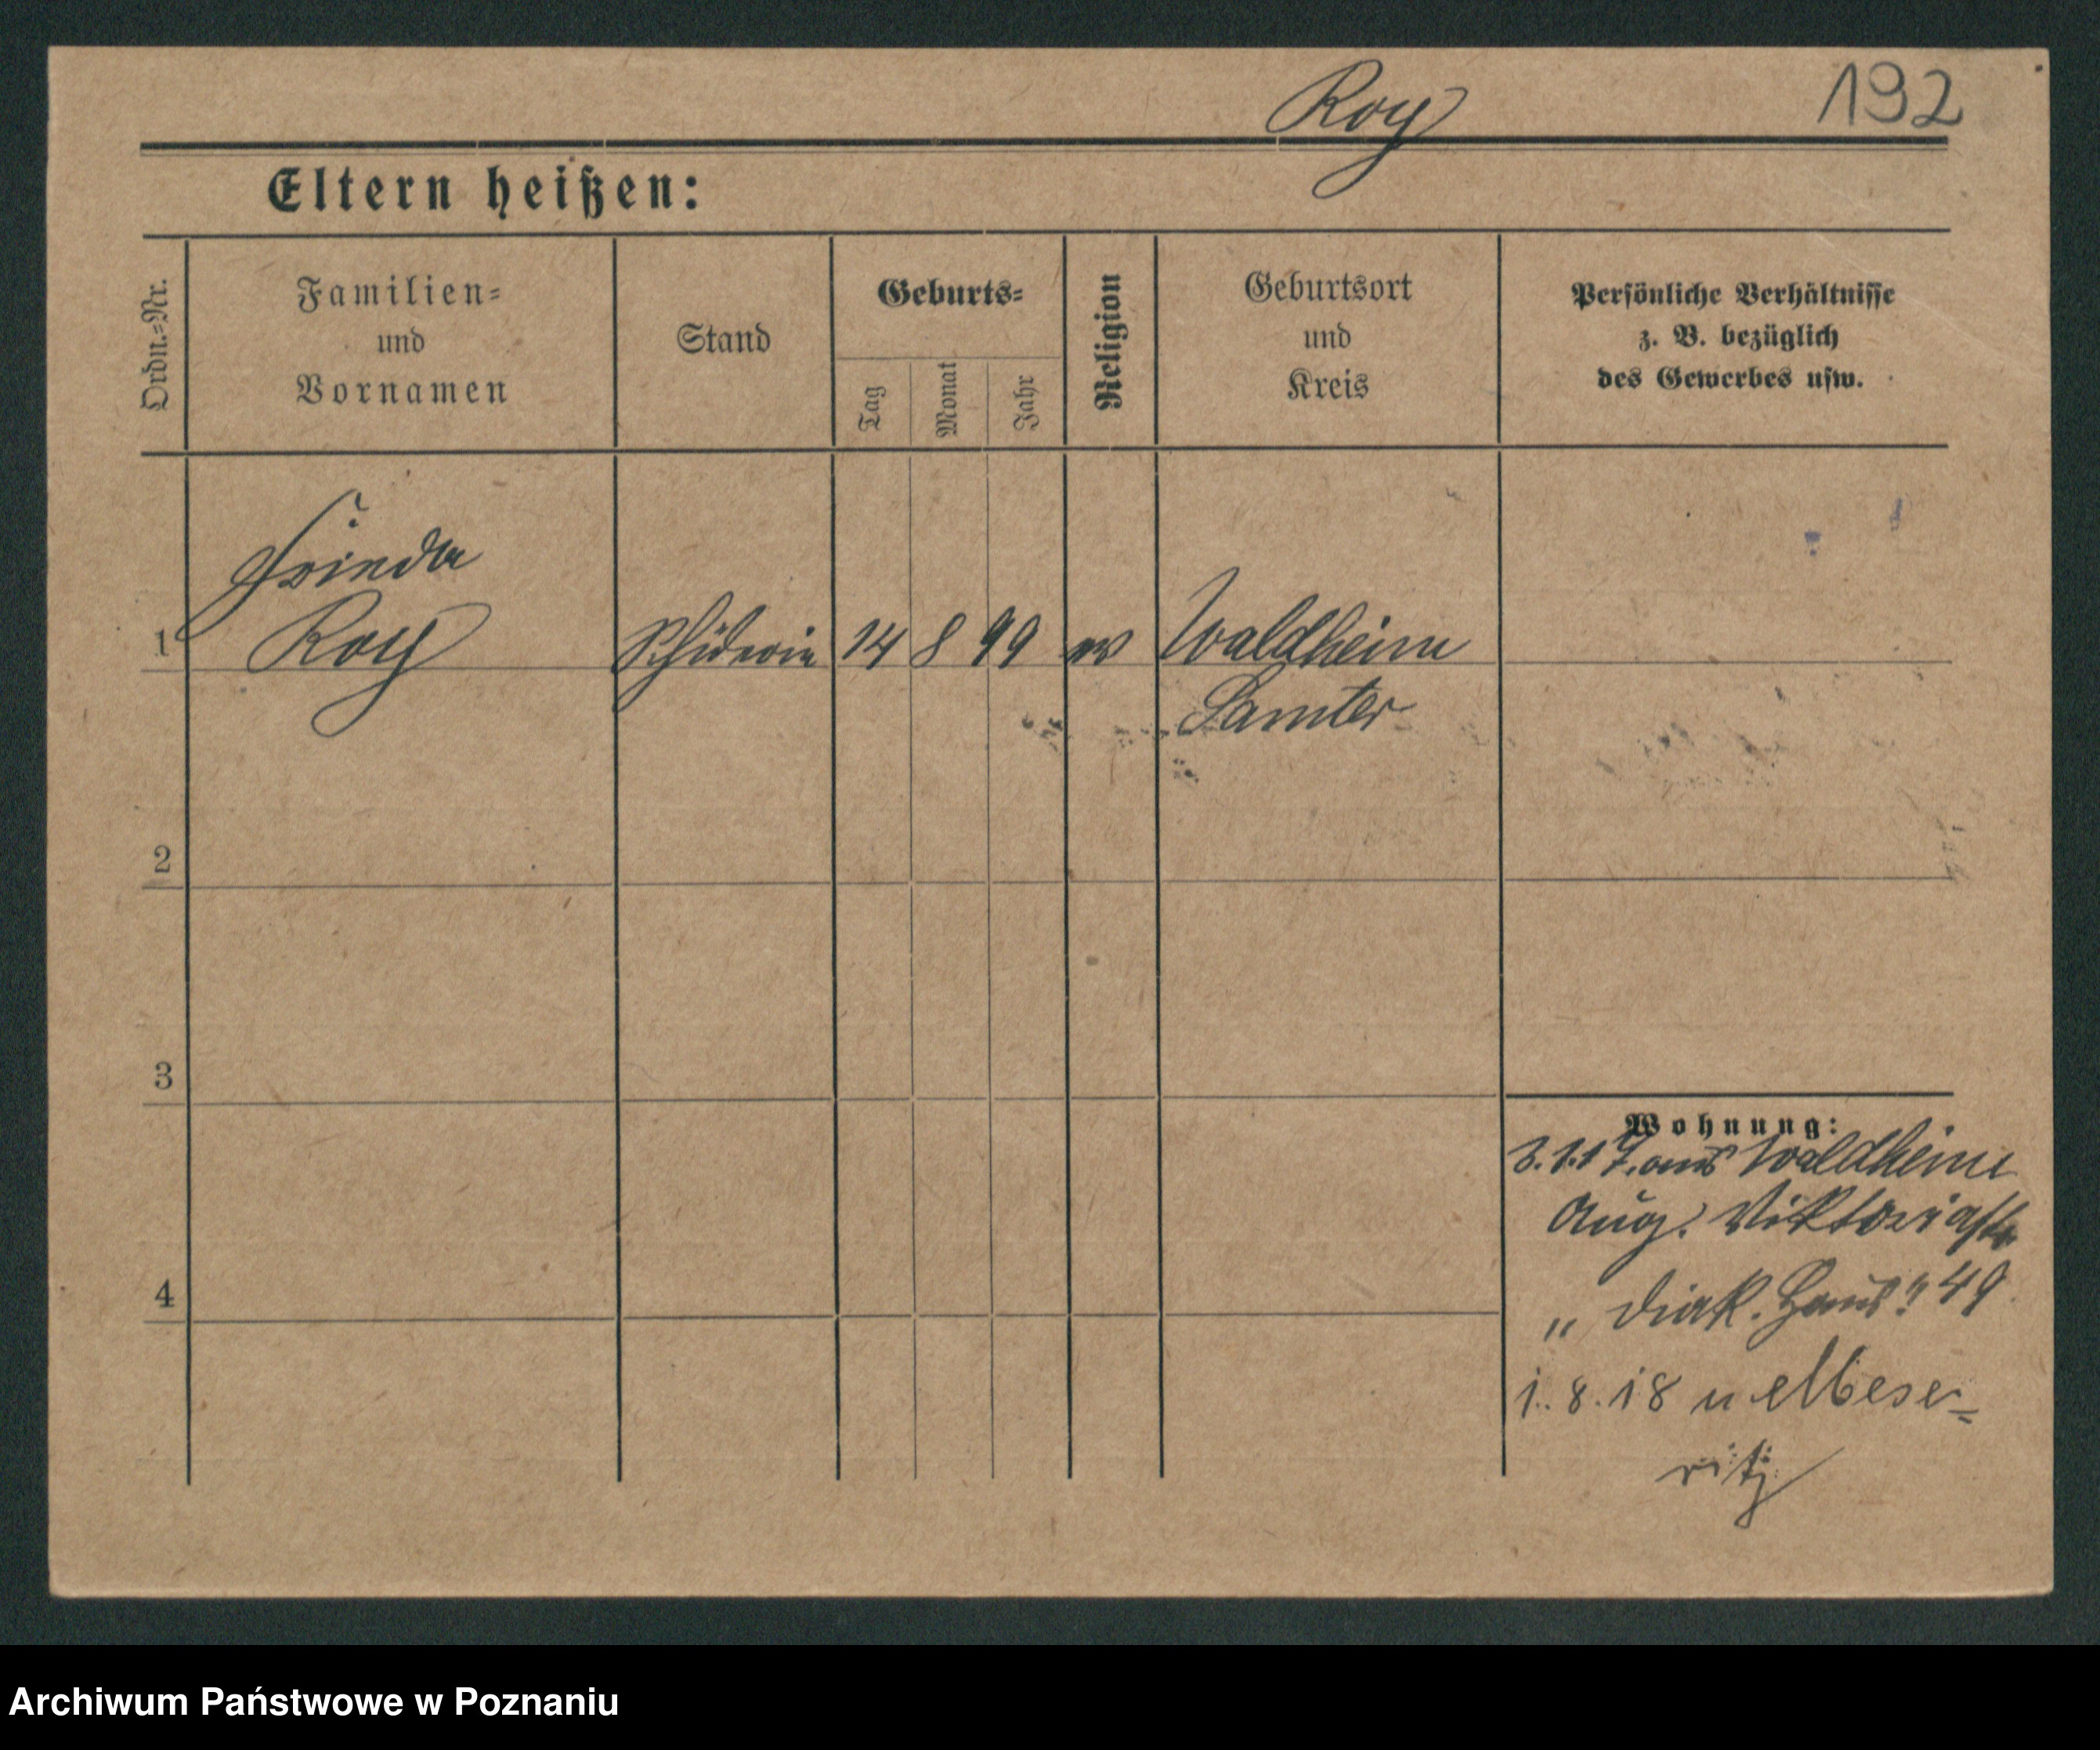 Roy
192
Eltern heißen:
Ordn.=Nr.
Familien=
und
Vornamen
Stand
Geburts=
Tag
Monat
Jahr
Religion
Geburtsort
und
Kreis
Persönliche Verhältnisse
z. B. bezüglich
des Gewerbes usw.
Frieda
1 Roy Schülerin 14 8 99 ev Waldheim
Samter
2
3
4
Wohnung:
3.1.17. aus Waldheim
Aug. Viktoriastr
„ Diak. Haus" 49
1.8.18 n Mese=
ritz
Archiwum Państwowe w Poznaniu